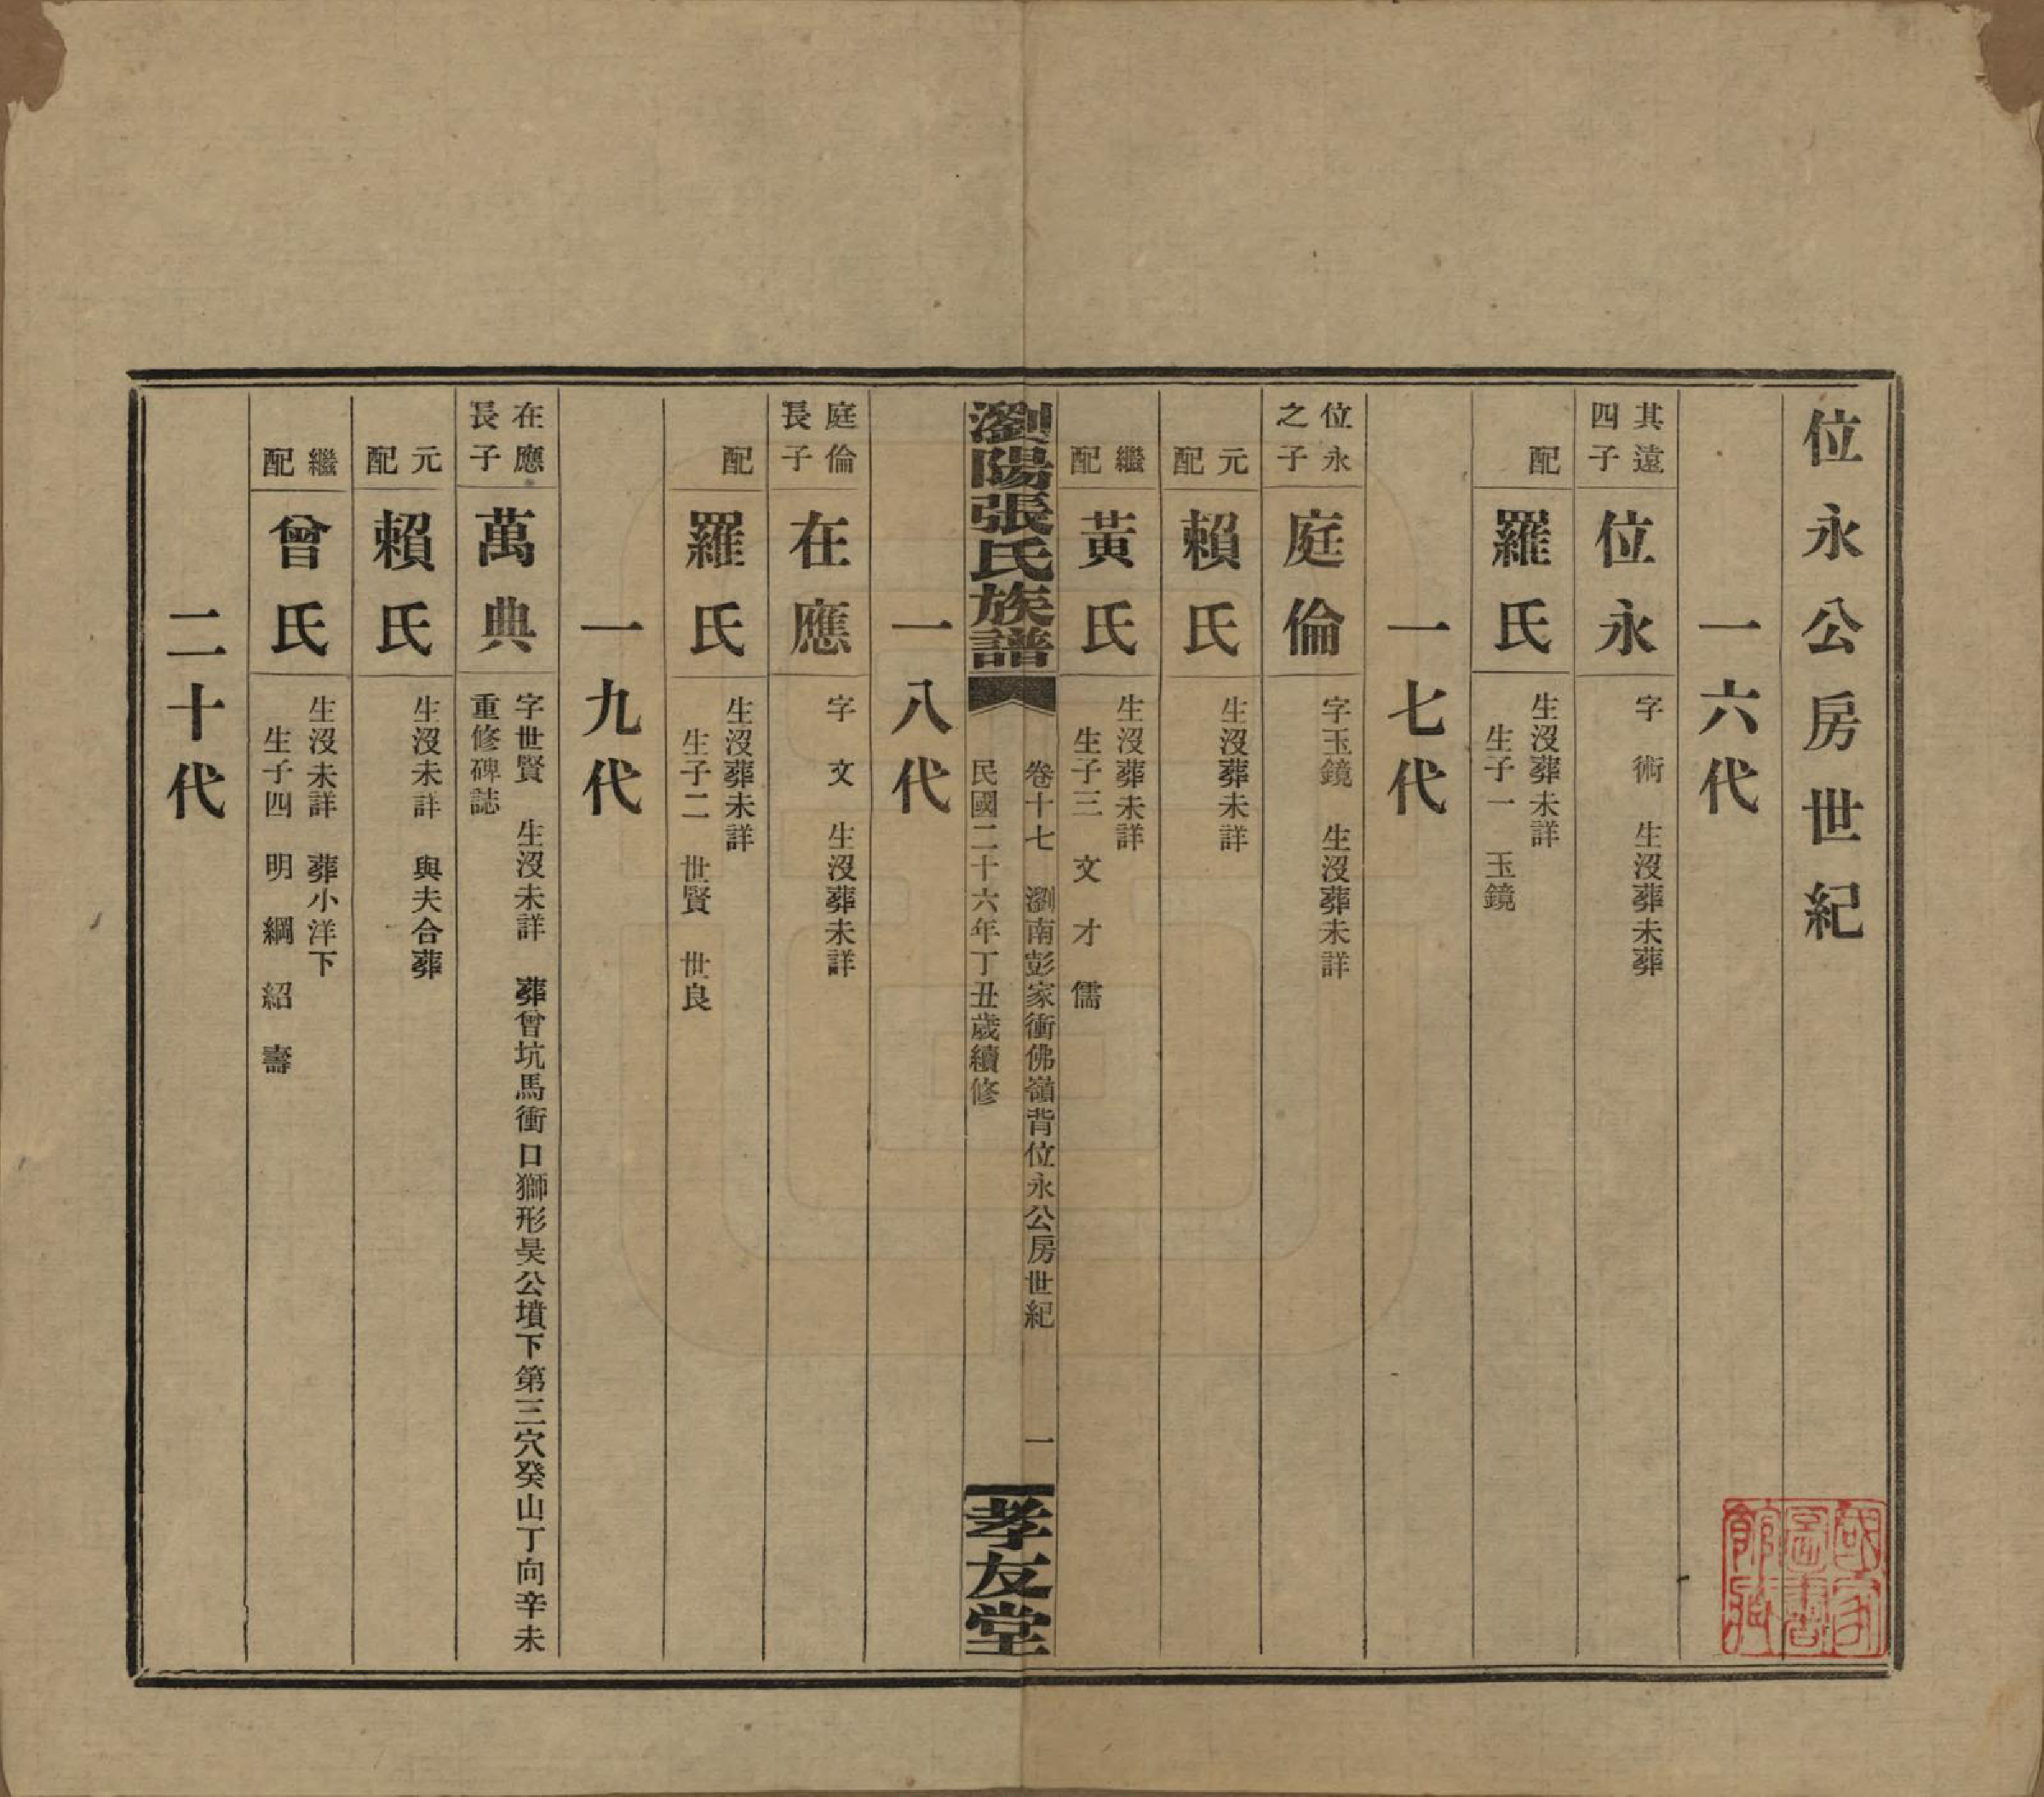 位永公房世紀
一六代
其遠
四子
位永
字 術 生沒葬未葬
配
羅氏
生沒葬未詳
生子一 玉鏡
一七代
位永
之子
庭倫
字玉鏡 生沒葬未詳
元
配
賴氏
生沒葬未詳
繼
配
黃氏
生沒葬未詳
生子三 文 才 儒
瀏陽張氏族譜
卷十七 瀏南彭家衝佛嶺背位永公房世紀 一
民國二十六年丁丑歲續修
孝友堂
一八代
庭倫
長子
在應
字 文 生沒葬未詳
配
羅氏
生沒葬未詳
生子二 世賢 世良
一九代
在應
長子
萬典
字世賢 生沒未詳 葬曾坑馬衝口獅形昊公墳下第三穴癸山丁向辛未
重修碑誌
元
配
賴氏
生沒未詳 與夫合葬
繼
配
曾氏
生沒未詳 葬小洋下
生子四 明 綱 紹 壽
二十代
國家
圖書
館藏